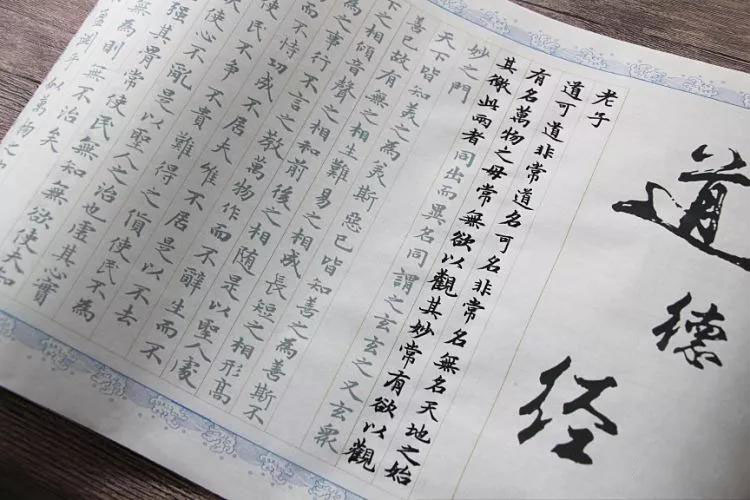 道德经
老子
道可道非常道名可名非常名無名天地之始
有名萬物之母常無欲以觀其妙常有欲以觀
其徼此兩者同出而異名同謂之玄玄之又玄衆
妙之門
天下皆知美之為美斯惡已皆知善之為善斯不
善已故有無之相生難易之相成長短之相形高
下之相傾音聲之相和前後之相随是以聖人處
為之事行不言之教萬物作而不辭生而不
而不恃功成不居夫惟不居是以不去
使民不爭不貴難得之貨使民不為
使心不亂是以聖人之治也虚其心實
強其骨常使民無知無欲使夫知
無為則無不治矣
淵乎似萬物之